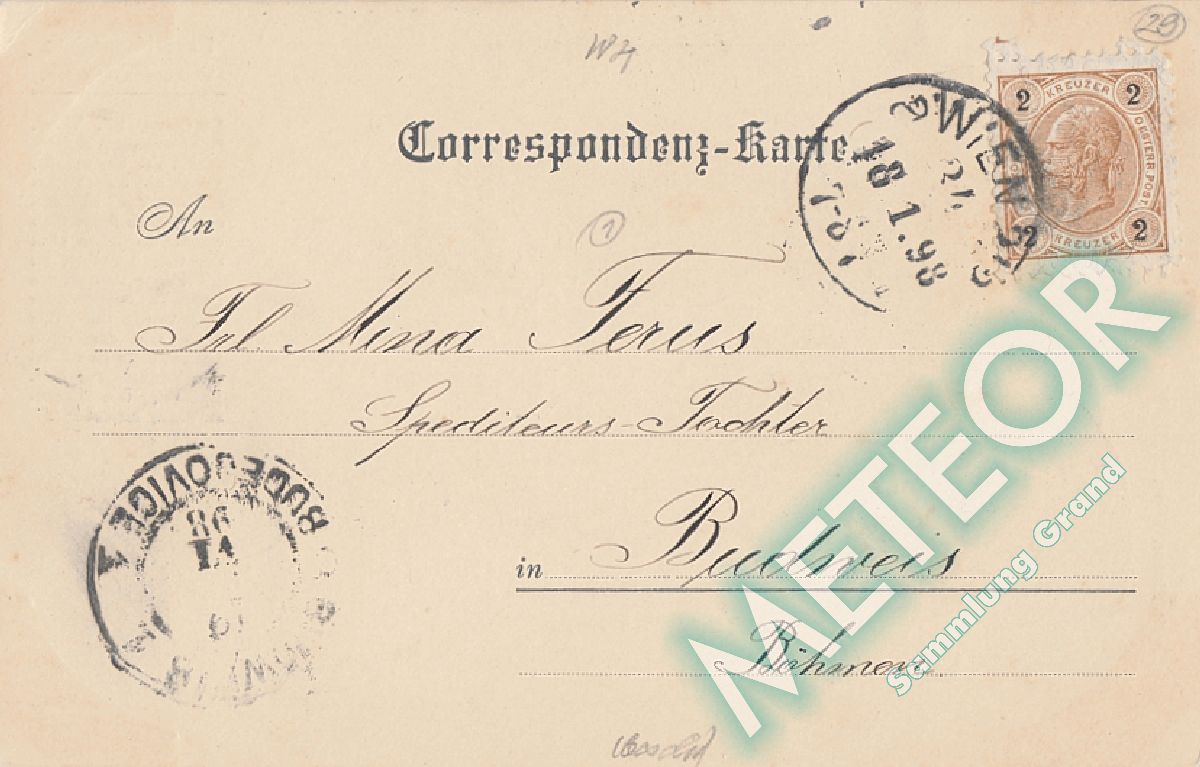 29
Correspondenz-Karte.
2 KREUZER 2
OESTERR. POST
2 KREUZER 2
WIEN
18 1.98
An
Frl. Mina Ferus
Spediteurs-Tochter
in Budweis
Böhmen
BUDĚJOVICE 1
98
METEOR
Sammlung Grand